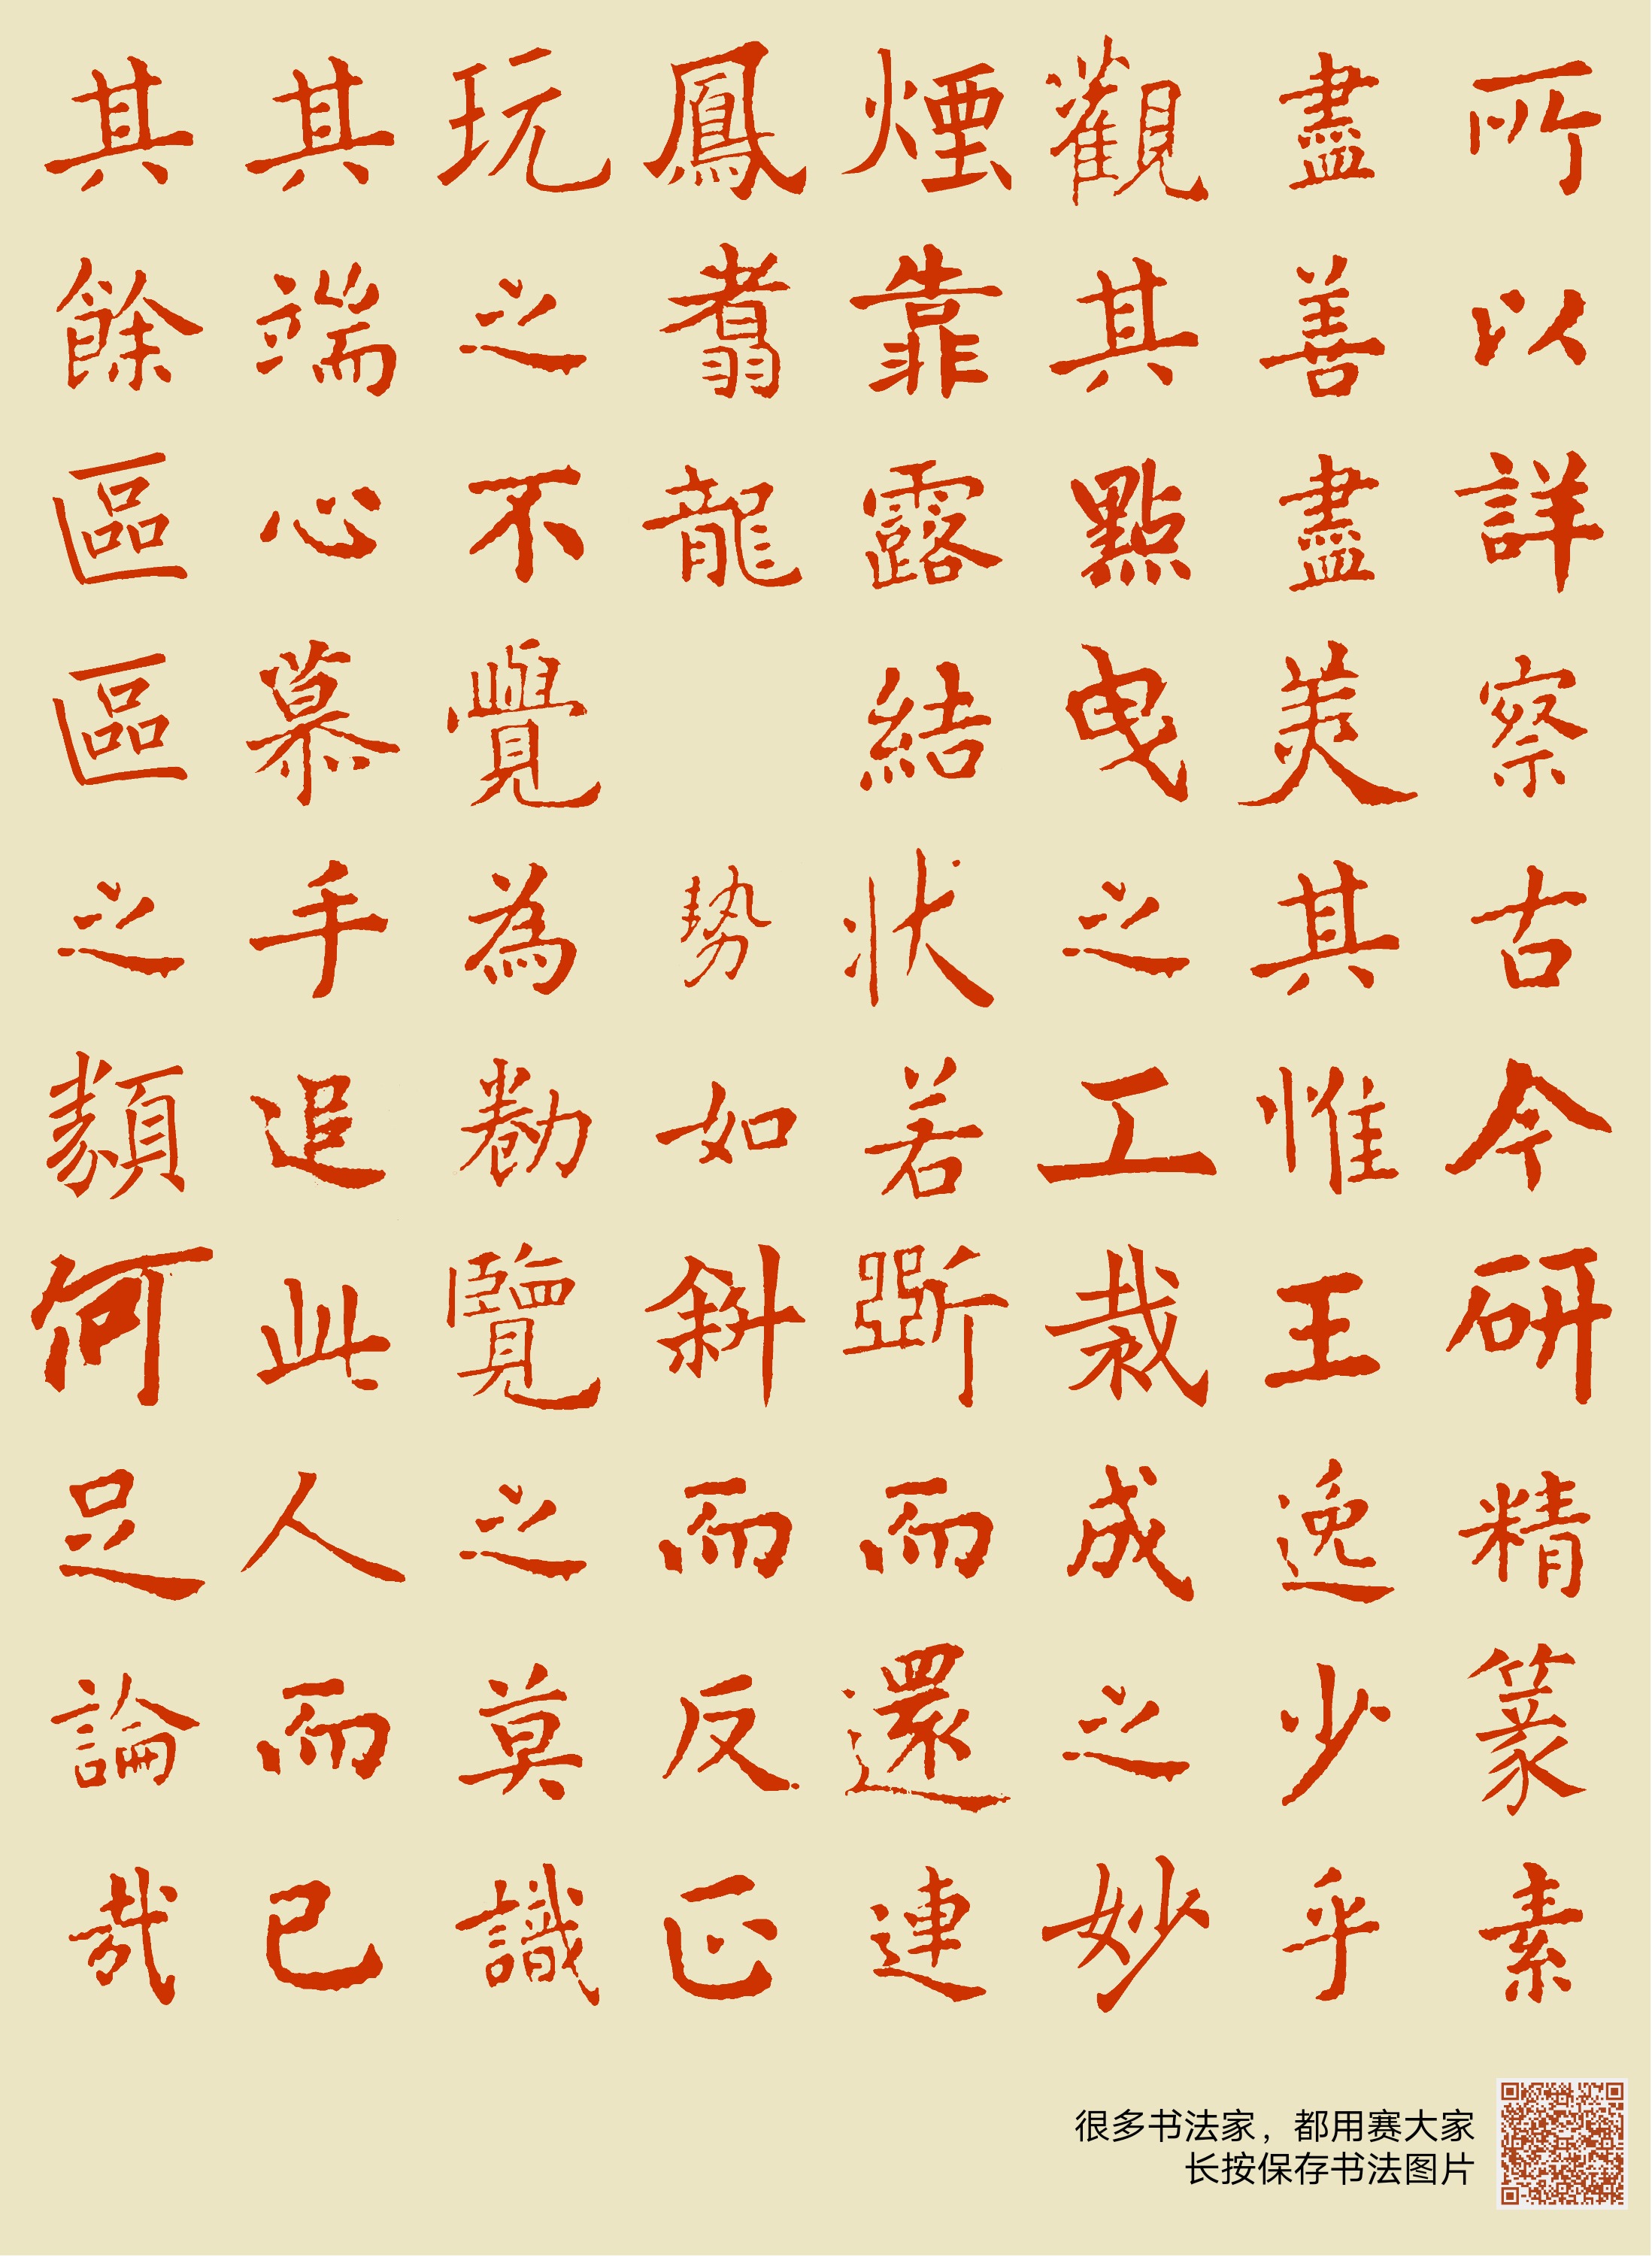 所以詳察古今研精篆素
盡善盡美其惟王逸少乎
觀其點曳之工裁成之妙
煙靠露結状若斷而還連
鳳翥龍 势如斜而反正
玩之不覺為勌覽之莫識
其端心慕手追此人而已
其餘區區之類何足論哉
很多书法家，都用赛大家
长按保存书法图片